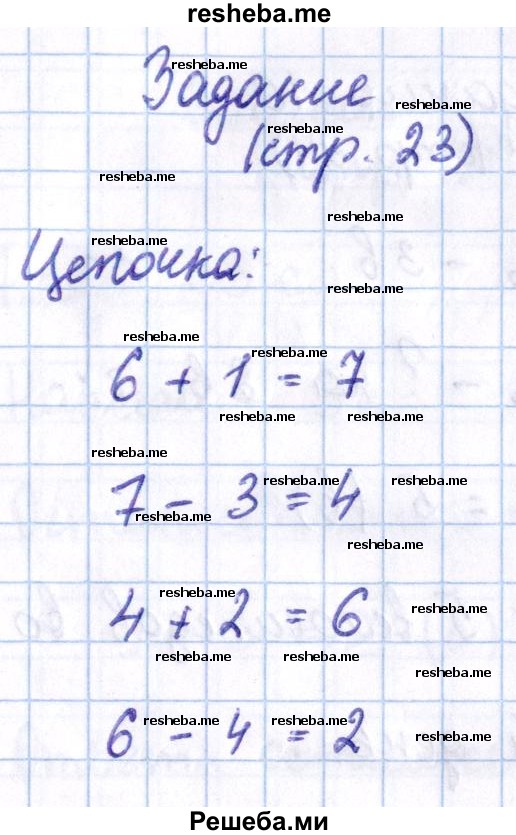 resheba.me
resheba.me
Задание
resheba.me
resheba.me
(стр. 23)
resheba.me
resheba.me
resheba.me
Цепочка:
resheba.me
resheba.me
resheba.me
6 + 1 = 7
resheba.me resheba.me
resheba.me
resheba.me resheba.me
7 - 3 = 4
resheba.me
resheba.me
resheba.me
resheba.me
4 + 2 = 6
resheba.me resheba.me
resheba.me
resheba.me resheba.me
6 - 4 = 2
resheba.me
Решеба.ми